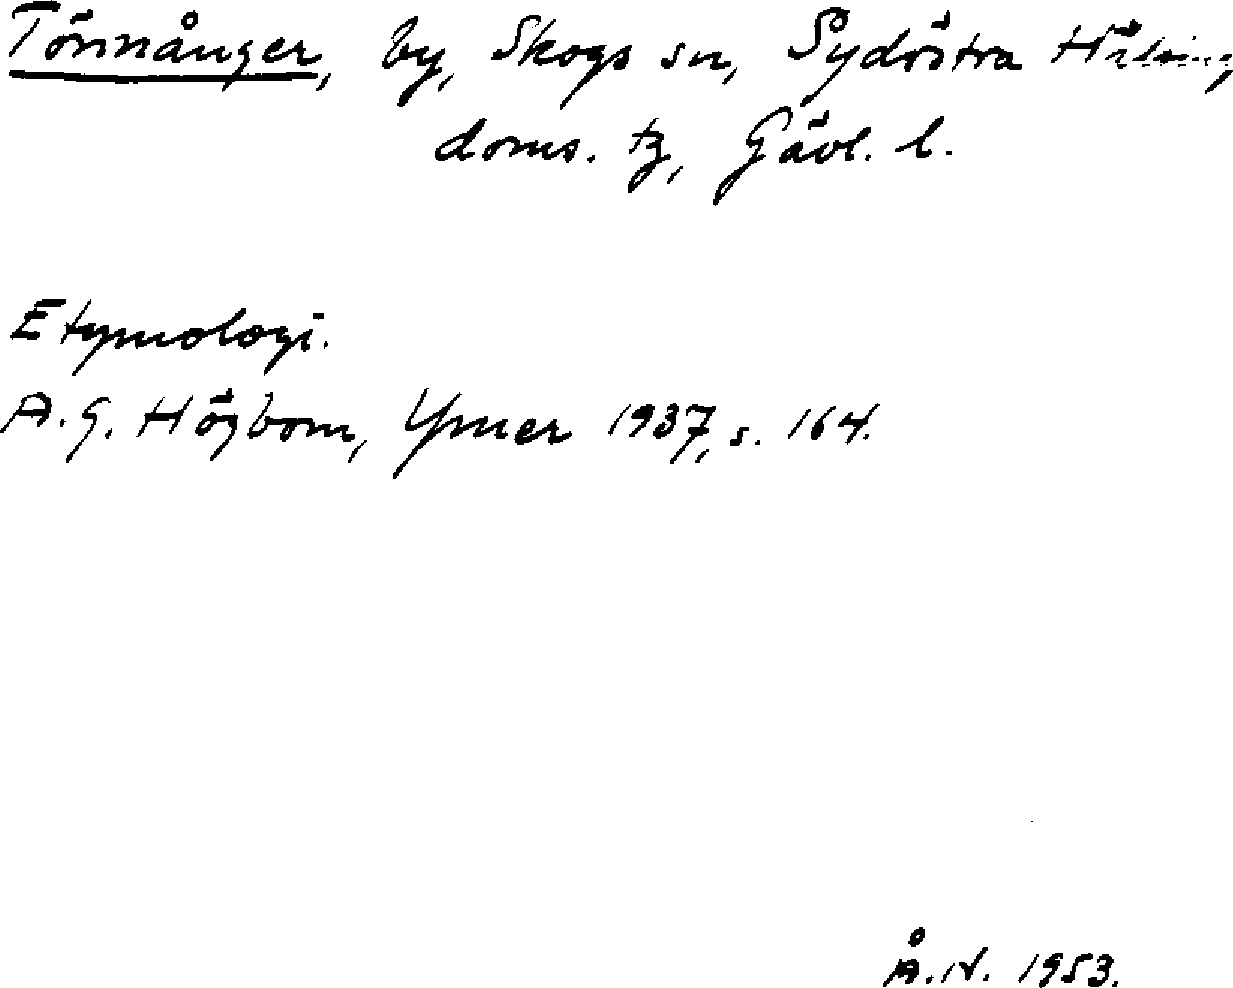 Tönnånger, by, Skogs sn, Sydöstra Hälsing,
doms. tg, Gävl. l.
Etymologi.
A. G. Högbom, Ymer 1937, s. 164.
Å. N. 1953.